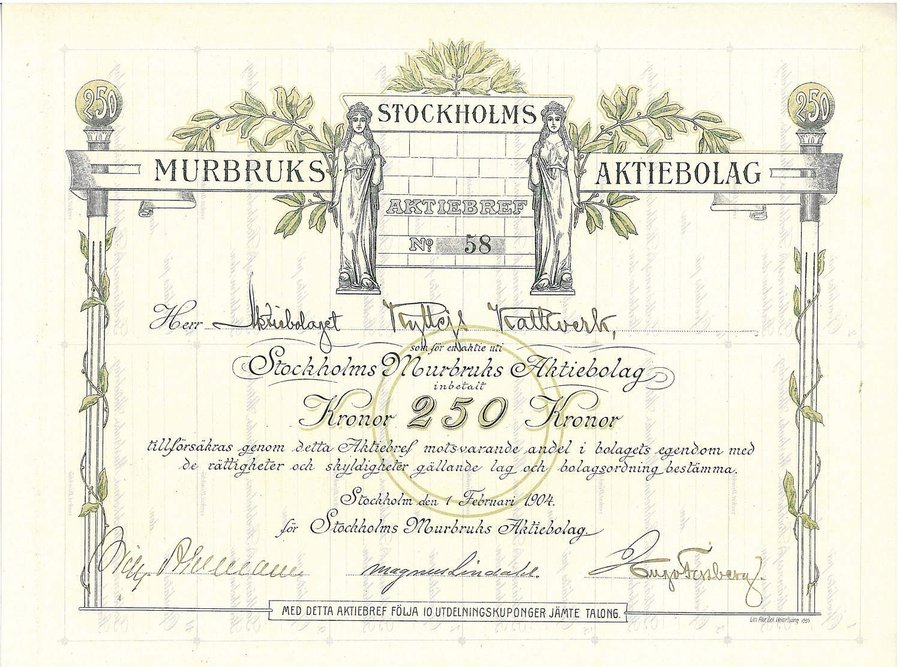 250
250
STOCKHOLMS
MURBRUKS
AKTIEBOLAG
AKTIEBREF
No 58
Herr Aktiebolaget Kyllejs Kalkverk,
som för en aktie uti
Stockholms Murbruks Aktiebolag
inbetalt
Kronor 250 Kronor
tillförsäkras genom detta Aktiebref motsvarande andel i bolagets egendom med
de rättigheter och skyldigheter gällande lag och bolagsordning bestämma.
Stockholm den 1 Februari 1904.
för Stockholms Murbruks Aktiebolag
Magnus Lindahl.
Hugo Forsberg.
MED DETTA AKTIEBREF FÖLJA 10 UTDELNINGSKUPONGER JÄMTE TALONG.